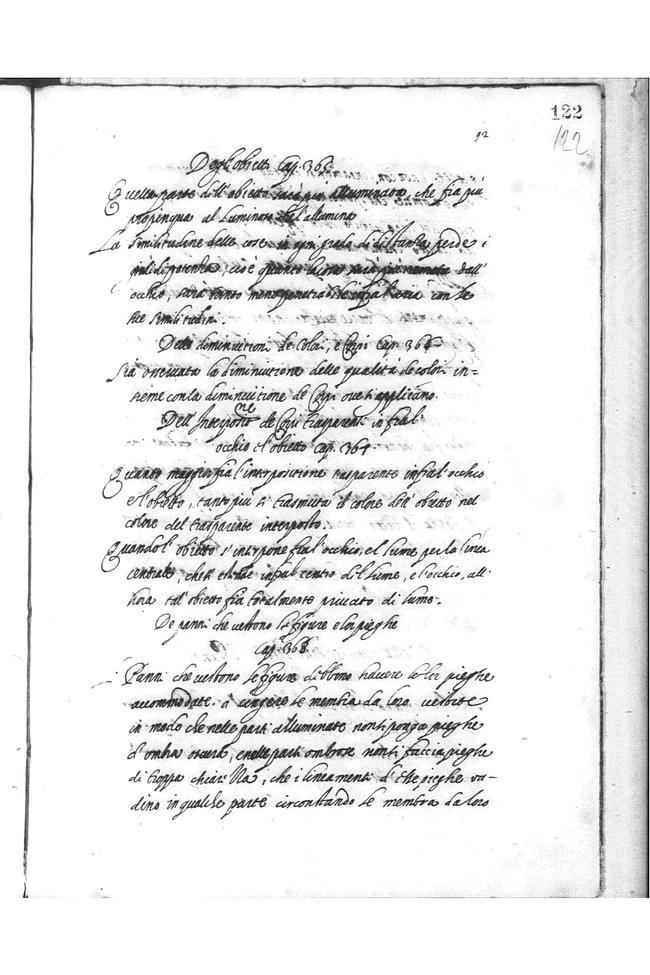 122
92
122
Degl'obietti Cap. 365.
Quella parte dell'obietto sarà più illuminata, che fia più
propinqua al luminoso che l'allumina
La similitudine delle cose in ogni grado di distanza perde i
gradi di potenza, cioè quanto la cosa sarà più remota dall'
occhio, sarà tanto meno penetrabile infra l'aria con le
sue similitudini.
Della diminuzioni de Colori, e Corpi Cap. 366
Sia osservata la diminuzione delle qualità de colori in=
sieme con la diminuzione de Corpi ove si applicano.
Dell'Interpositione de Corpi trasparenti in fra l'
occhio e l'obietto cap. 367.
Quanto maggior fia l'interpositione trasparente infra l'occhio
e l'obietto, tanto più si trasmuta il colore dell'obietto nel
colore del trasparente interposto.
Quando l'obietto s'interpone fra l'occhio, el lume per la linea
centrale, che si infra l centro del lume, e l'occhio, all'
hora tal'obietto fia totalmente privato di lume.
De panni che vestono le figure e lor pieghe
Cap. 368.
Panni che vestono le figure debbono havere le lor pieghe
accommodate à cingere le membra da loro vestite
in modo che nelle parti alluminate non si ponga pieghe
d'ombra oscura, e nelle parti ombrose non si faccia pieghe
di troppa chiarezza, che i lineamenti d'esse pieghe va-
dino in qualche parte circondando le membra da loro